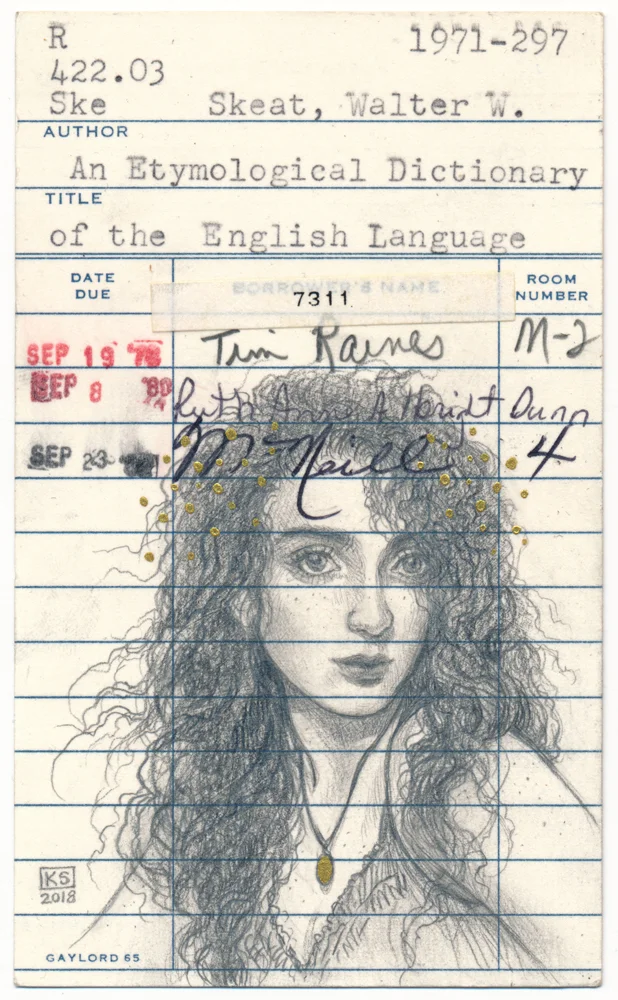 R 1971-297
422.03
Ske Skeat, Walter W.
AUTHOR
An Etymological Dictionary
TITLE
of the English Language
DATE DUE BORROWER'S NAME ROOM NUMBER
7311
SEP 19 '78 Tim Raines M-2
SEP 8 '80 Ruth Anne Albright Dunn
SEP 23 McNeill 4
KS
2018
GAYLORD 65